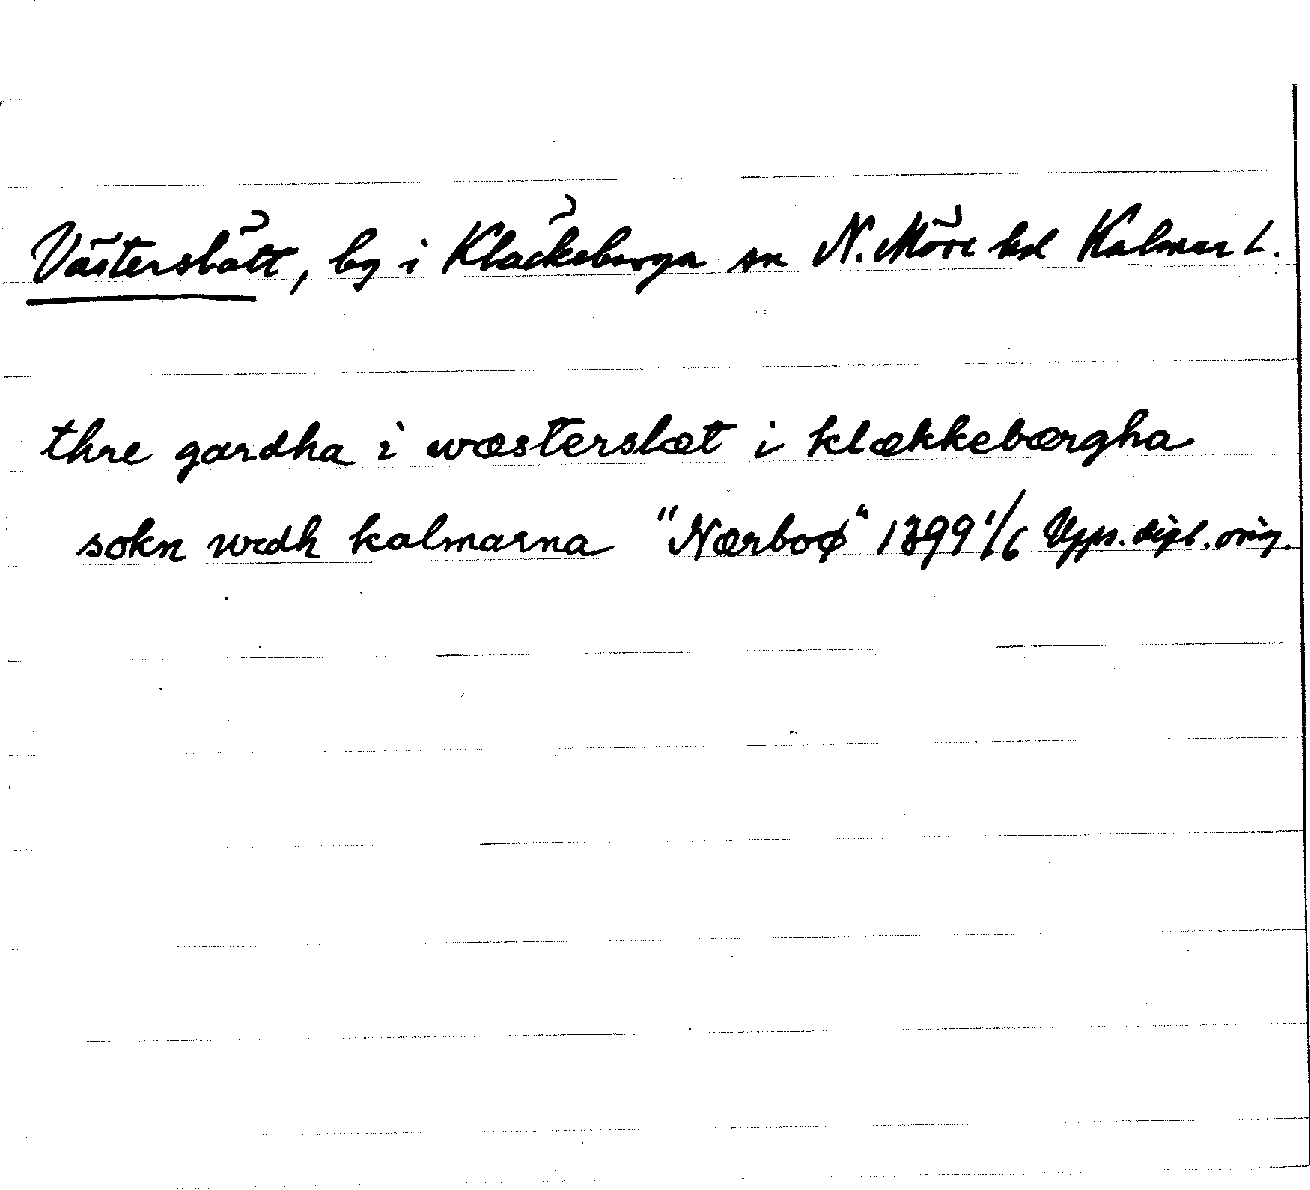 Västerslätt, by i Kläckeberga sn N. Möre hd Kalmar l.
thre gardha i wæsterslæt i klækkebærgha
sokn wedh kalmarna "Nærboø" 1399 1/6 Upps. dipl. orig.